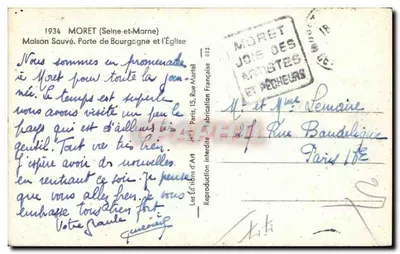 1934 MORET (Seine-et-Marne)
Maison Sauvé. Porte de Bourgogne et l'Église
Nous sommes en promenade
à Moret pour toute la jour
née. Le temps est superbe
nous avons visité un peu le
pays qui est d'ailleurs très
gentil. Tout va très bien.
J'espère avoir des nouvelles
en rentrant ce soir. Je pense
que vous allez bien, je vous
embrasse tous très fort
Votre grande
Les Éditions d'Art Paris, 15, Rue Martel
Reproduction interdite Fabrication Française
MORET
JOIE DES
ARTISTES
ET PÊCHEURS
M et Mme Lemaire
27 Rue Baudelique
Paris 18E